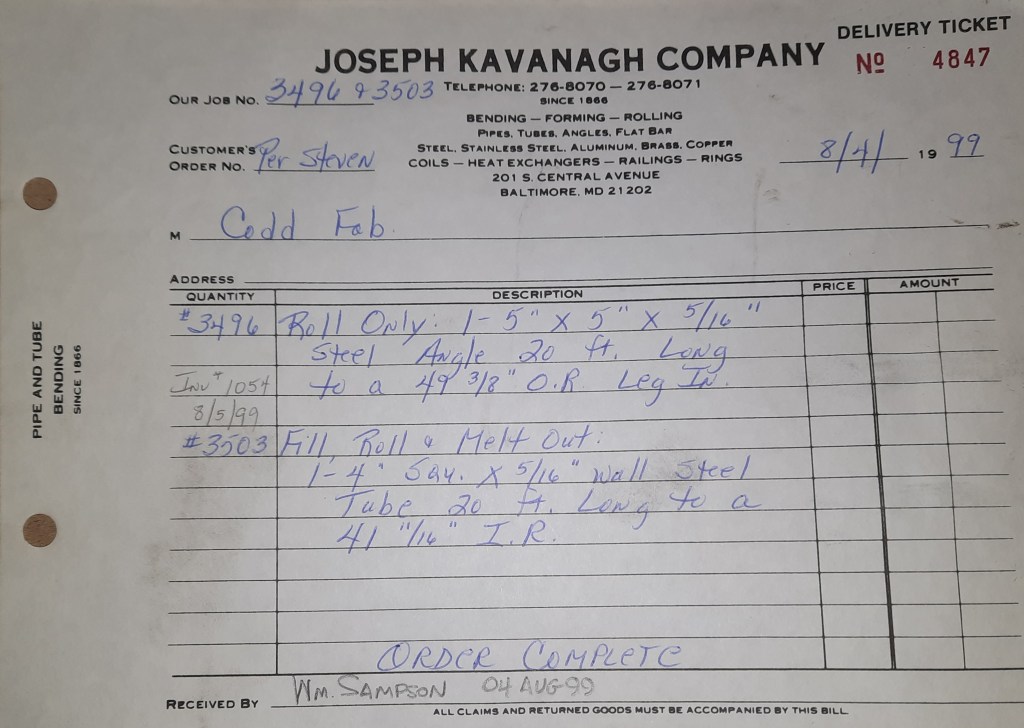 DELIVERY TICKET
JOSEPH KAVANAGH COMPANY
Nº 4847
OUR JOB NO. 3496 & 3503
TELEPHONE: 276-8070 — 276-8071
SINCE 1866
BENDING — FORMING — ROLLING
PIPES, TUBES, ANGLES, FLAT BAR
CUSTOMER'S ORDER NO. Per Steven
STEEL, STAINLESS STEEL, ALUMINUM, BRASS, COPPER
COILS — HEAT EXCHANGERS — RAILINGS — RINGS
8/4/ 19 99
201 S. CENTRAL AVENUE
BALTIMORE, MD 21202
M Codd Fab.
ADDRESS
QUANTITY DESCRIPTION PRICE AMOUNT
#3496 Roll Only: 1- 5" X 5" X 5/16"
Steel Angle 20 ft. Long
Inv# 1054 to a 49 3/8" O.R. Leg In.
8/5/99
#3503 Fill, Roll & Melt Out:
1-4" Squ. X 5/16" Wall Steel
Tube 20 ft. Long to a
41 11/16" I.R.
ORDER COMPLETE
RECEIVED BY WM. SAMPSON 04 AUG 99
ALL CLAIMS AND RETURNED GOODS MUST BE ACCOMPANIED BY THIS BILL
PIPE AND TUBE
BENDING
SINCE 1866